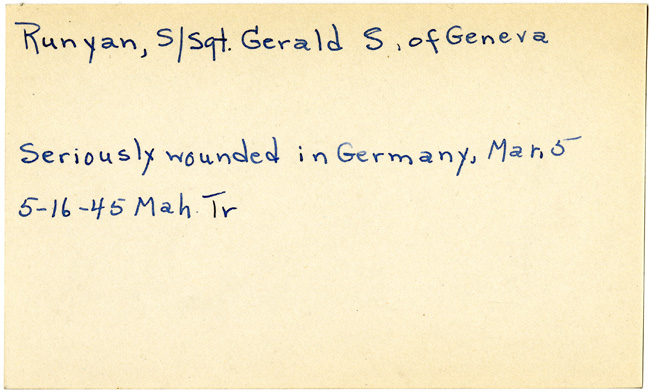 Runyan, S/Sgt. Gerald S. of Geneva
Seriously wounded in Germany, Mar. 5
5-16-45 Mah. Tr